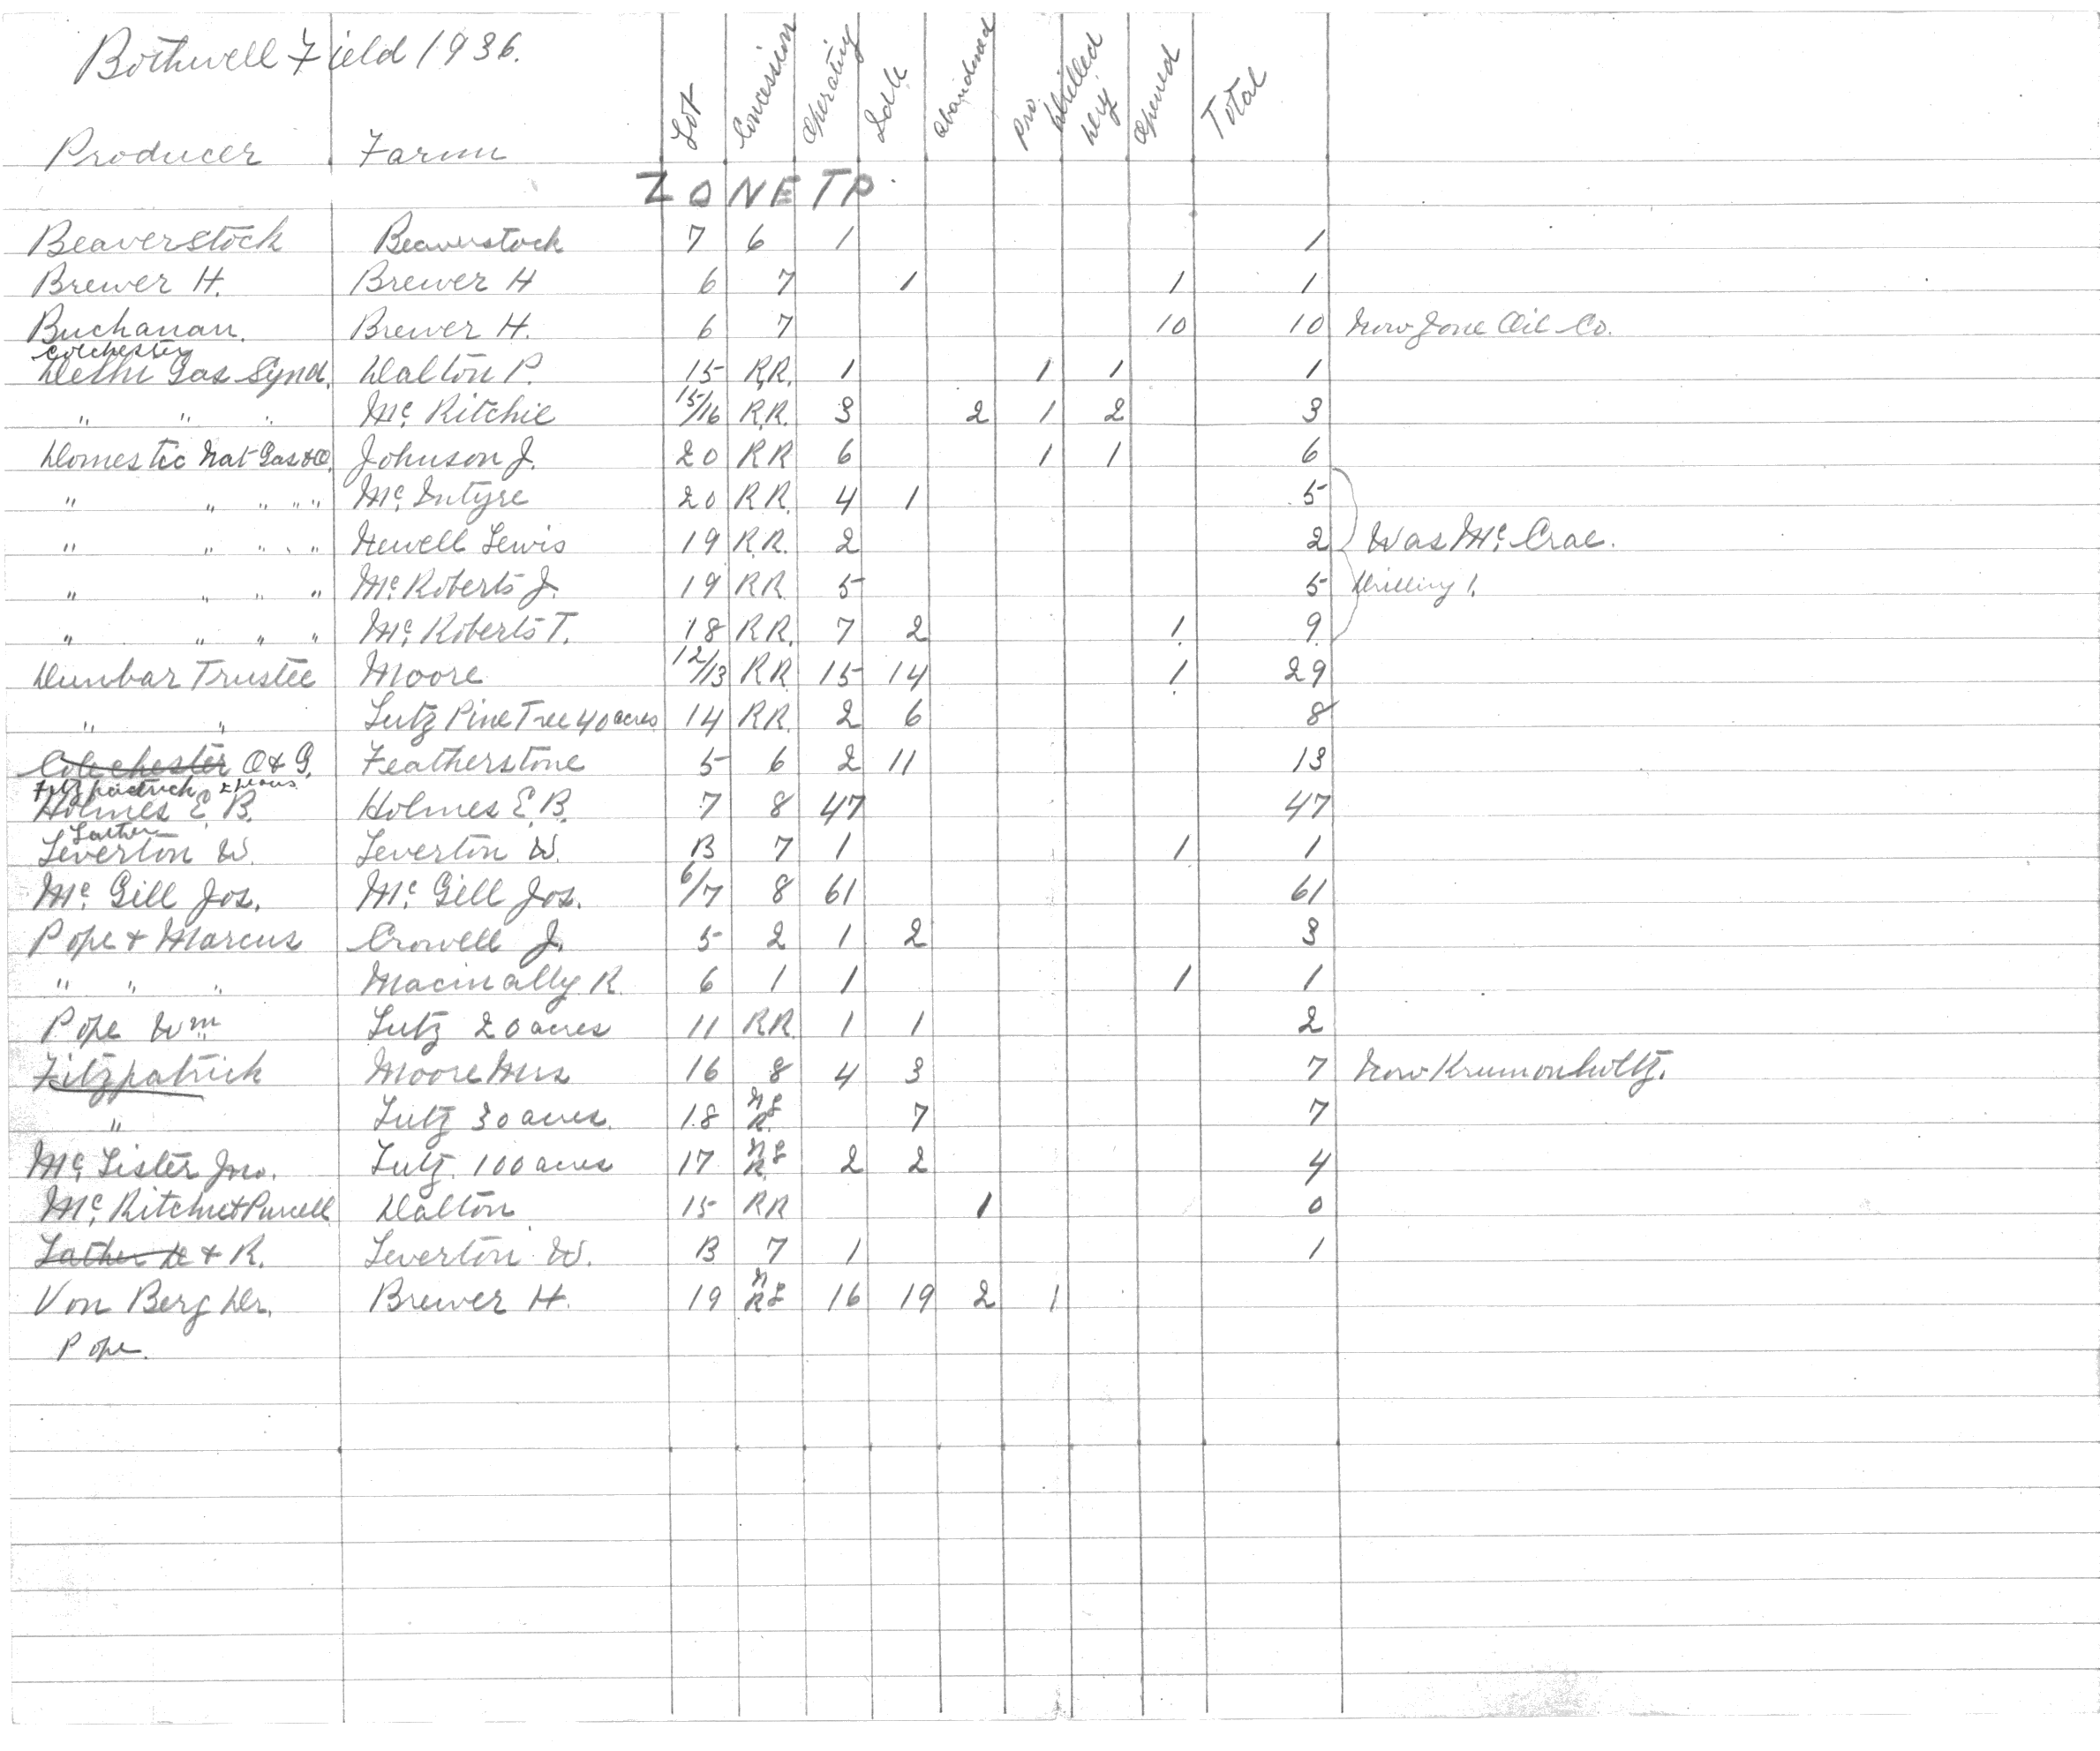 Bothwell Field 1936.
Producer Farm Lot Concession Operating Idle Abandoned Pro. Drilled Dry Opened Total
ZONE TP.
Beaverstock Beaverstock 7 6 1 1
Brewer H. Brewer H 6 7 1 1 1
Buchanan. Brewer H. 6 7 10 10 Now Zone Oil Co.
Colchester
Delhi Gas Synd. Dalton P. 15 R.R. 1 1 1 1
" " " Mc Ritchie 15/16 R.R. 3 2 1 2 3
Domestic Nat Gas & O. Johnson J. 20 RR 6 1 1 6
" " " " " Mc. Intyre 20 R.R. 4 1 5
" " " " " Newell Lewis 19 R.R. 2 2 Was Mc. Crae.
" " " " Mc Roberts J. 19 RR. 5 5 Drilling 1.
" " " " Mc. Roberts T. 18 RR. 7 2 1. 9.
Dunbar Trustee Moore 12/13 RR. 15 14 1 29
" " Lutz Pine Tree 40 acres 14 RR. 2 6 8
Colechester O & G. Featherstone 5 6 2 11 13
Fitzpatrick &
Holmes E. B. Holmes E. B. 7 8 47 47
Lather
Leverton W. Leverton W. B 7 1 1 1
Mc. Gill Jos. Mc. Gill Jos. 6/7 8 61 61
Pope & Marcus Crowell J. 5 2 1 2 3
" " " Macinally R. 6 1 1 1 1
Pope Wm Lutz 20 acres 11 RR 1 1 2
Fitzpatrick Moore Mrs 16 8 4 3 7 Now Krumonholtz.
" Lutz 30 acres. 18 N L R. 7 7
Mc. Lister Jno. Lutz. 100 acres 17 N L R. 2 2 4
Mc. Ritchie & Purcell Dalton 15 RR 1 0
Lather & R. Leverton W. B 7 1 1
Von Berg Dr. Brewer H. 19 N R L 16 19 2 1
Pope.